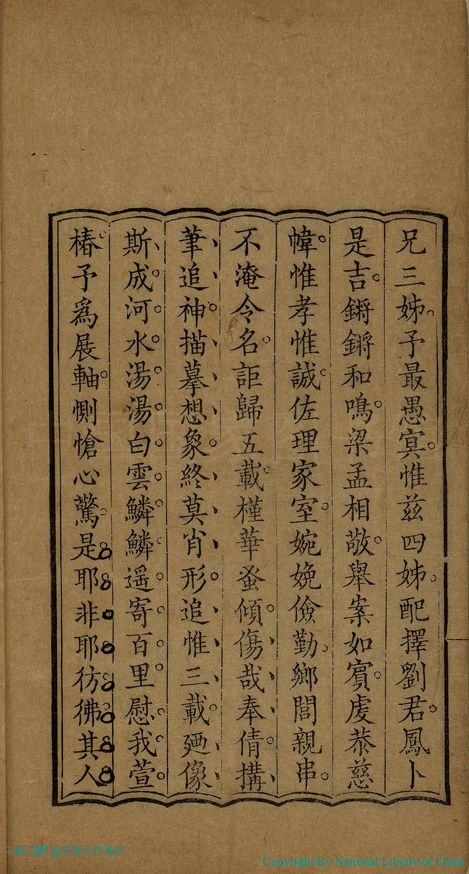 兄三姊予最愚㝠惟兹四姊配擇劉君鳳卜
是吉鏘鏘和鳴梁孟相敬舉案如賓虔恭慈
幃惟孝惟誠佐理家室婉娩儉勤鄉閭親串
不淹令名詎歸五載槿華蚤傾傷哉奉倩搆
筆追神描摹想象終莫肖形追惟三載廼像
斯成河水湯湯白雲鱗鱗遥寄百里慰我萱
椿予爲展軸惻愴心驚是耶非耶彷彿其人
Copyright By National Library of China